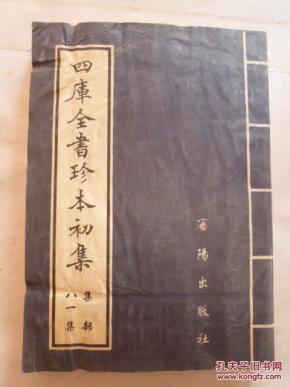 四庫全書珍本初集
集部
八一集
瀋陽出版社
孔夫子旧书网